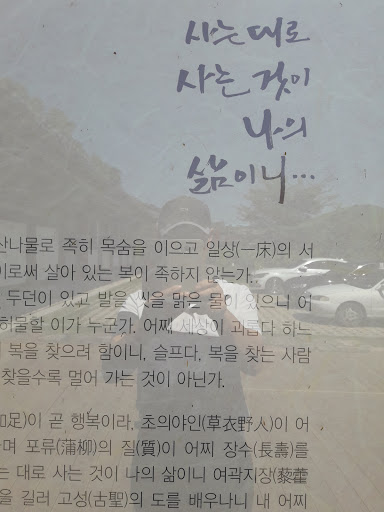 사는대로
사는 것이
나의
삶이니…
산나물로 족히 목숨을 이으고 일상(一床)의 서
이로써 살아 있는 복이 족하지 않는가..
두던이 있고 발을 씻을 맑은 물이 있으니 어
허물할 이가 누군가. 어째 세상이 괴롭다 하느
복을 찾으려 함이니, 슬프다, 복을 찾는 사람
찾을수록 멀어 가는 것이 아닌가.
知足)이 곧 행복이라. 초의야인(草衣野人)이 어
며 포류(蒲柳)의 질(質)이 어찌 장수(長壽)를
는 대로 사는 것이 나의 삶이니 여곽지장(藜藿
을 길러 고성(古聖)의 도를 배우나니 내 어찌